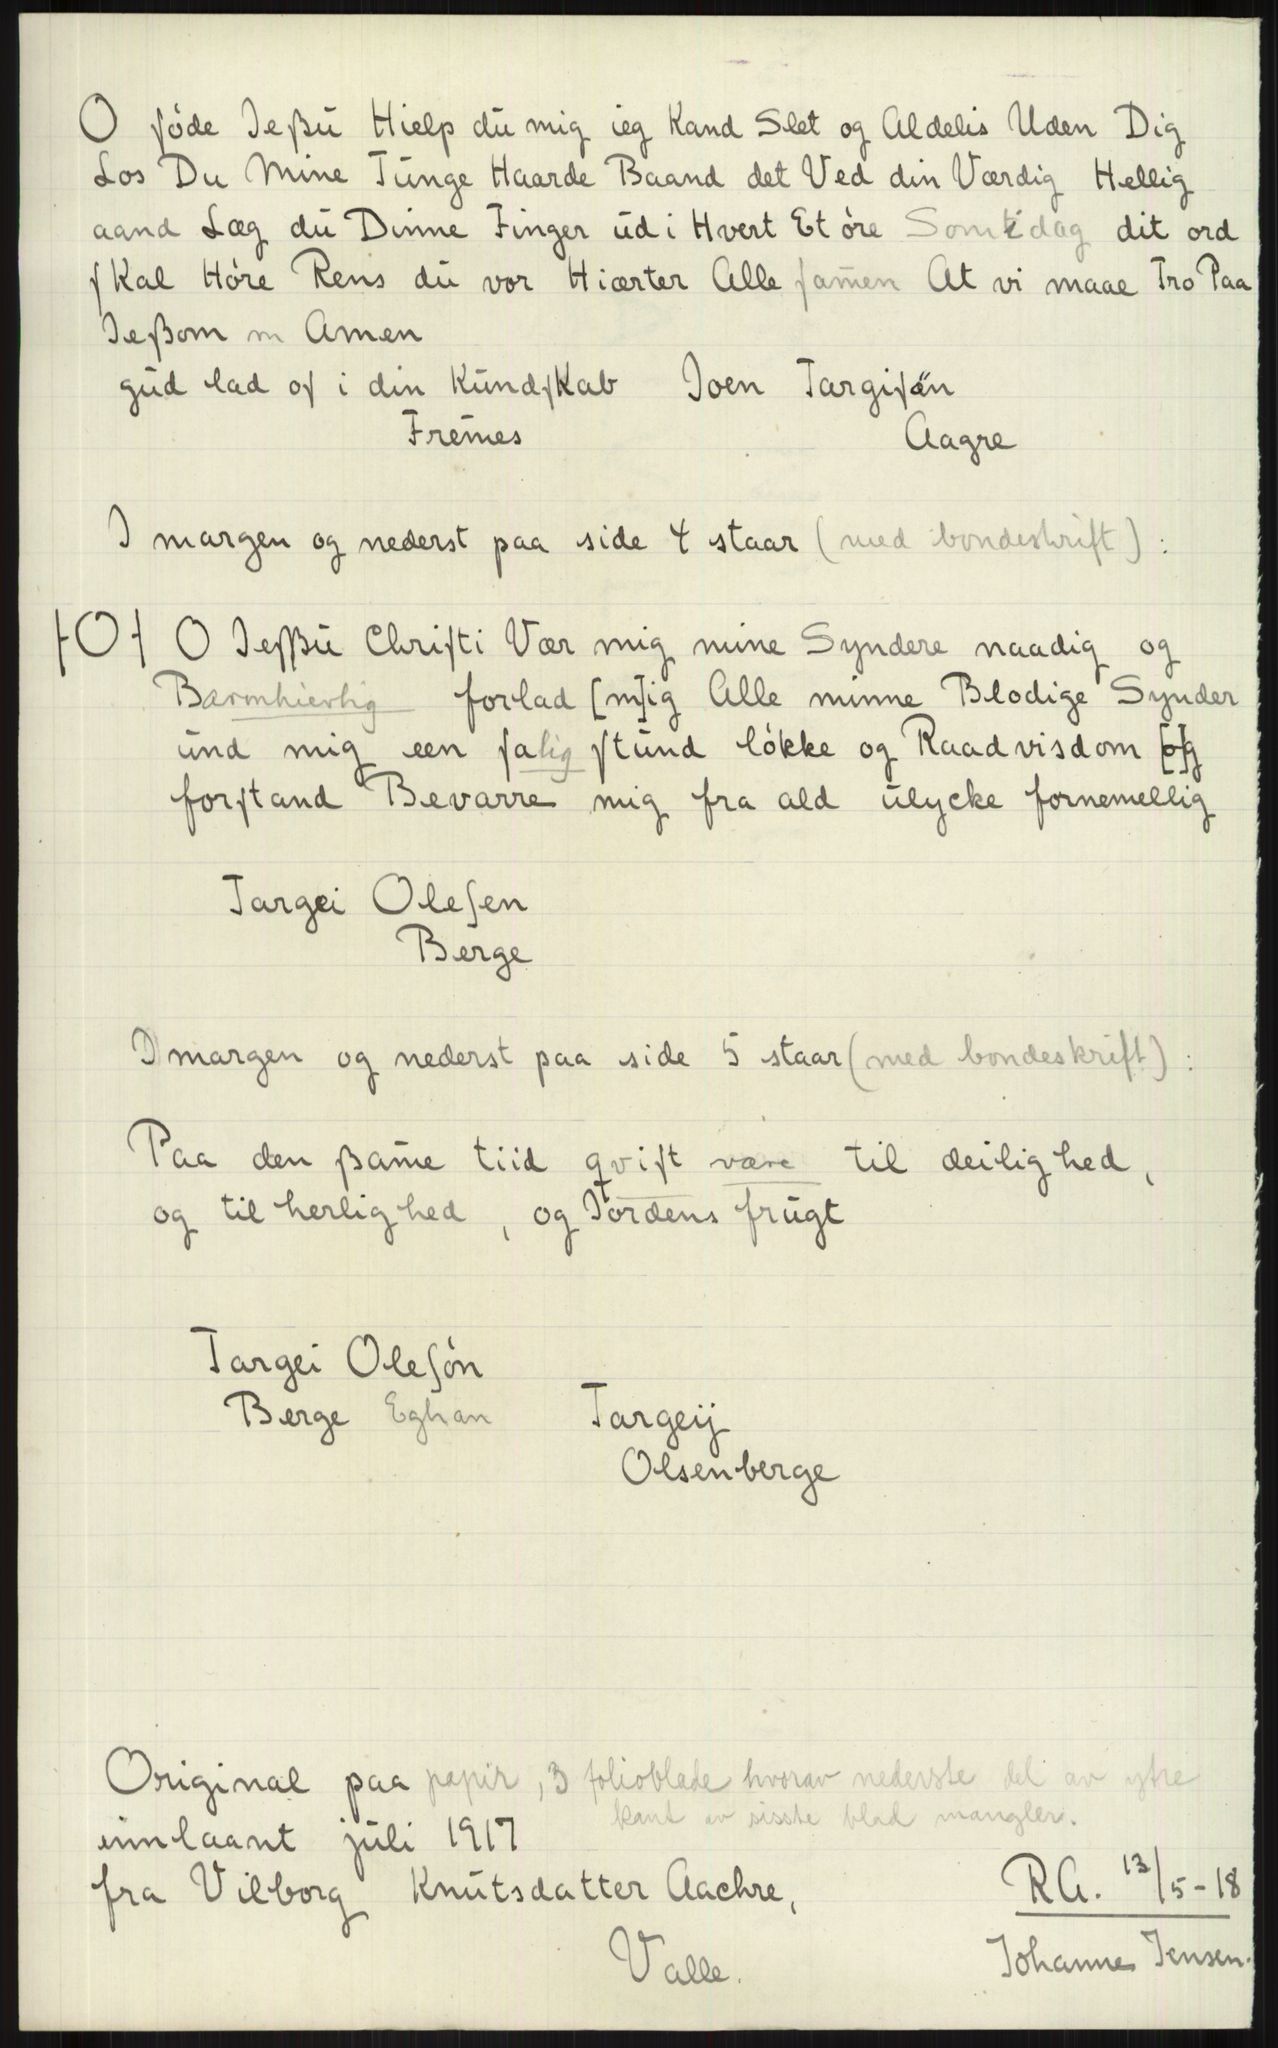 O ſóde Ieſsū Hielp dū mig ieg Kand Slet og Aldelis Uden Dig
Los Du Mine Tūnge Haarde Baand det Ved din Værdig Hellig
aand Læg dū Dinne Finger ūd i Hvert Et óre Som i dag dit ord
ſKal Hóre Rens dū vor Hiærter Alle ſam̄en At vi maae Tro Paa
Ießom m Amen
gūd lad oſ i din KūndſKab Joen Targiſön
Frem̄es Aagre
I margen og nederst paa side 4 staar (med bondeskrift):
O O Ieſßū Chriſti Vær mig mine Syndere naadig og
Barmhiertig forlad [m]ig Alle minne Blodige Synder
ūnd mig een ſalig ſtūnd lókke og Raadvisdom [o]g
forſtand Bevarre mig fra ald ūlycke fornemellig
Targei Oleſen
Berge
I margen og nederst paa side 5 staar (med bondeskrift):
Paa den ßam̄e tiid qviſt være til deilighed,
og til herlighed, og Iordens frūgt
Targei Oleſón
Berge Eghan Targeij
Olsenberge
Original paa papir, 3 folioblade hvorav nederste del av ytre
kant av sisste blad mangler.
innlaant jūli 1917
fra Vilborg Knūtsdatter Aachre,
R.A. 13/5-18
Valle.
Johanne Jensen.